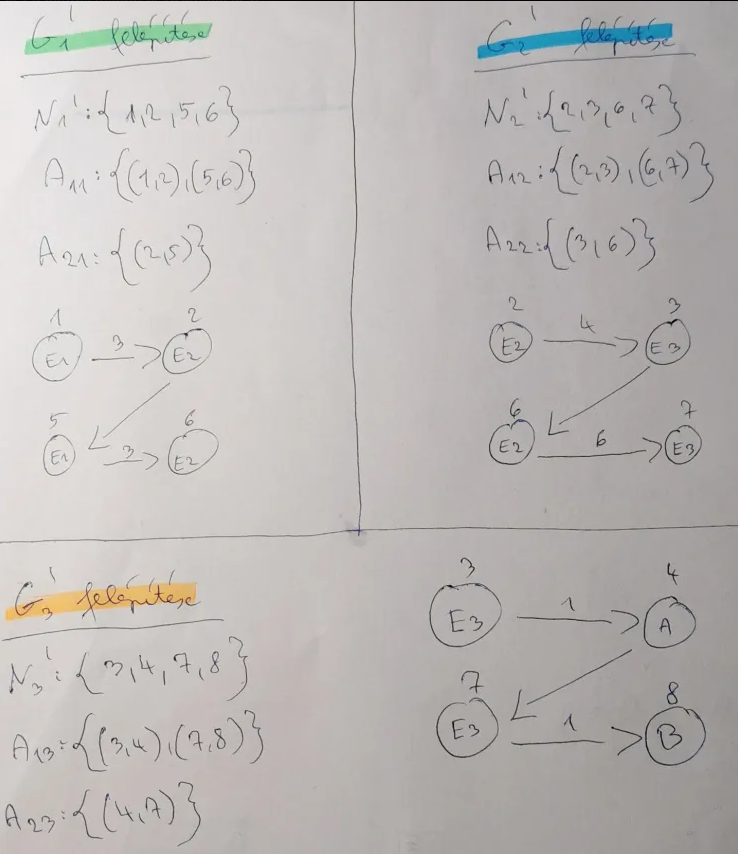 G₁' felépítése
N₁': {1,2,5,6}
A₁₁: {(1,2),(5,6)}
A₂₁: {(2,5)}
1 2
E1 3 E2
5 6
E1 3 E2
G₂' felépítése
N₂': {2,3,6,7}
A₁₂: {(2,3),(6,7)}
A₂₂: {(3,6)}
2 3
E2 4 E3
6 7
E2 6 E3
G₃' felépítése
N₃': {3,4,7,8}
A₁₃: {(3,4),(7,8)}
A₂₃: {(4,7)}
3 4
E3 1 A
7 8
E3 1 B